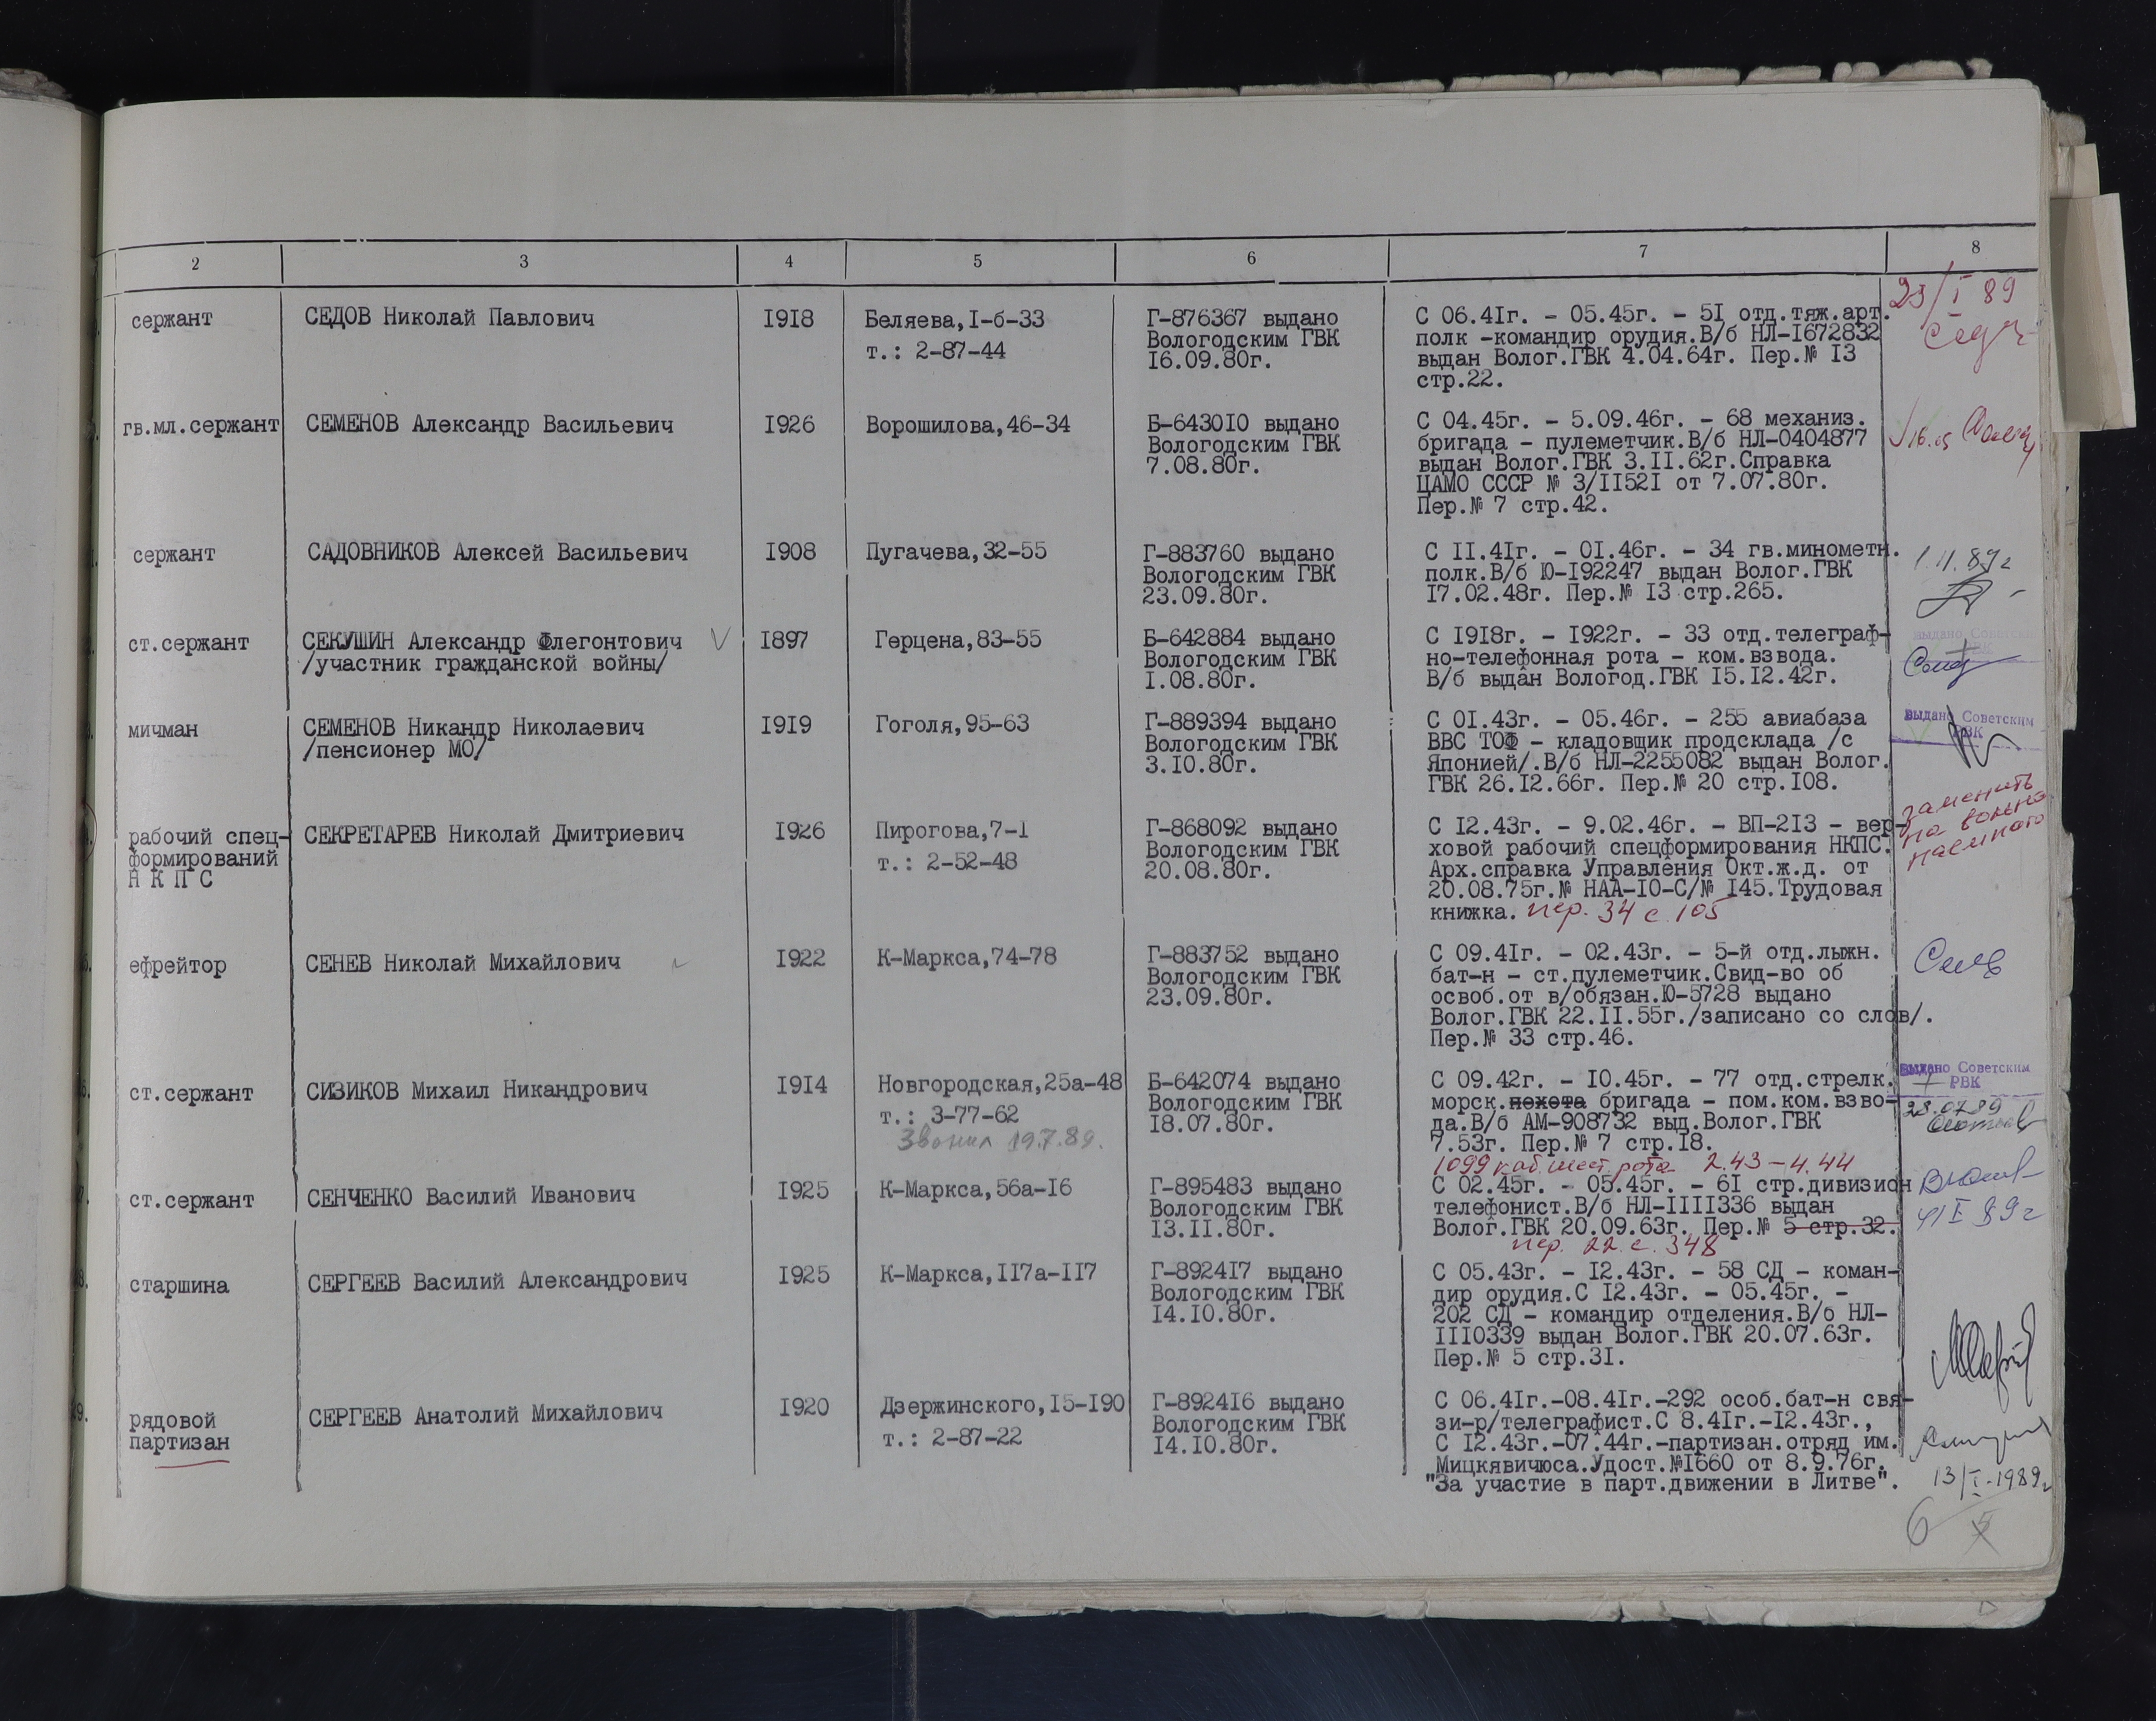 2 3 4 5 6 7 8
сержант
СЕДОВ Николай Павлович
1918
Беляева,1-б-33
т.: 2-87-44
Г-876367 выдано
Вологодским ГВК
16.09.80г.
С 06.41г. - 05.45г. - 51 отд.тяж.арт.
полк -командир орудия.В/б НЛ-1672832
выдан Волог.ГВК 4.04.64г. Пер.№ 13
стр.22.
23/I 89
гв.мл.сержант
СЕМЕНОВ Александр Васильевич
1926
Ворошилова,46-34
Б-643010 выдано
Вологодским ГВК
7.08.80г.
С 04.45г. - 5.09.46г. - 68 механиз.
бригада - пулеметчик.В/б НЛ-0404877
выдан Волог.ГВК 3.11.62г.Справка
ЦАМО СССР № 3/11521 от 7.07.80г.
Пер.№ 7 стр.42.
сержант
САДОВНИКОВ Алексей Васильевич
1908
Пугачева,32-55
Г-883760 выдано
Вологодским ГВК
23.09.80г.
С 11.41г. - 01.46г. - 34 гв.минометн.
полк.В/б Ю-192247 выдан Волог.ГВК
17.02.48г. Пер.№ 13 стр.265.
1.11.89г
ст.сержант
СЕКУШИН Александр Флегонтович
/участник гражданской войны/
1897
Герцена,83-55
Б-642884 выдано
Вологодским ГВК
1.08.80г.
С 1918г. - 1922г. - 33 отд.телеграф-
но-телефонная рота - ком.взвода.
В/б выдан Вологод.ГВК 15.12.42г.
выдано Советским
мичман
СЕМЕНОВ Никандр Николаевич
/пенсионер МО/
1919
Гоголя,95-63
Г-889394 выдано
Вологодским ГВК
3.10.80г.
С 01.43г. - 05.46г. - 255 авиабаза
ВВС ТОФ - кладовщик продсклада /с
Японией/.В/б НЛ-2255082 выдан Волог.
ГВК 26.12.66г. Пер.№ 20 стр.108.
выдано Советским
РВК
рабочий спец-
формирований
Н К П С
СЕКРЕТАРЕВ Николай Дмитриевич
1926
Пирогова,7-1
т.: 2-52-48
Г-868092 выдано
Вологодским ГВК
20.08.80г.
С 12.43г. - 9.02.46г. - ВП-213 - вер-
ховой рабочий спецформирования НКПС.
Арх.справка Управления Окт.ж.д. от
20.08.75г.№ НАА-10-С/№ 145.Трудовая
книжка. пер. 34 с. 105
заменить
на вольно
наемного
ефрейтор
СЕНЕВ Николай Михайлович
1922
К-Маркса,74-78
Г-883752 выдано
Вологодским ГВК
23.09.80г.
С 09.41г. - 02.43г. - 5-й отд.лыжн.
бат-н - ст.пулеметчик.Свид-во об
освоб.от в/обязан.Ю-5728 выдано
Волог.ГВК 22.11.55г./записано со слов/.
Пер.№ 33 стр.46.
ст.сержант
СИЗИКОВ Михаил Никандрович
1914
Новгородская,25а-48
т.: 3-77-62
Звонил 19.7.89.
Б-642074 выдано
Вологодским ГВК
18.07.80г.
С 09.42г. - 10.45г. - 77 отд.стрелк.
морск.пехота бригада - пом.ком.взво-
да.В/б АМ-908732 выд.Волог.ГВК
7.53г. Пер.№ 7 стр.18.
выдано Советским
РВК
28.0789
1099 каб. шест. рота 2.43-4.44
ст.сержант
СЕНЧЕНКО Василий Иванович
1925
К-Маркса,56а-16
Г-895483 выдано
Вологодским ГВК
13.11.80г.
С 02.45г. - 05.45г. - 61 стр.дивизион
телефонист.В/б НЛ-1111336 выдан
Волог.ГВК 20.09.63г. Пер.№ 5 стр.32.
пер. 22 с. 348
старшина
СЕРГЕЕВ Василий Александрович
1925
К-Маркса,117а-117
Г-892417 выдано
Вологодским ГВК
14.10.80г.
С 05.43г. - 12.43г. - 58 СД - коман-
дир орудия.С 12.43г. - 05.45г. -
202 СД - командир отделения.В/б НЛ-
1110339 выдан Волог.ГВК 20.07.63г.
Пер.№ 5 стр.31.
рядовой
партизан
СЕРГЕЕВ Анатолий Михайлович
1920
Дзержинского,15-190
т.: 2-87-22
Г-892416 выдано
Вологодским ГВК
14.10.80г.
С 06.41г.-08.41г.-292 особ.бат-н свя-
зи-р/телеграфист.С 8.41г.-12.43г.,
С 12.43г.-07.44г.-партизан.отряд им.
Мицкявичюса.Удост.№1660 от 8.9.76г.
"За участие в парт.движении в Литве".
13/I-1989г
6